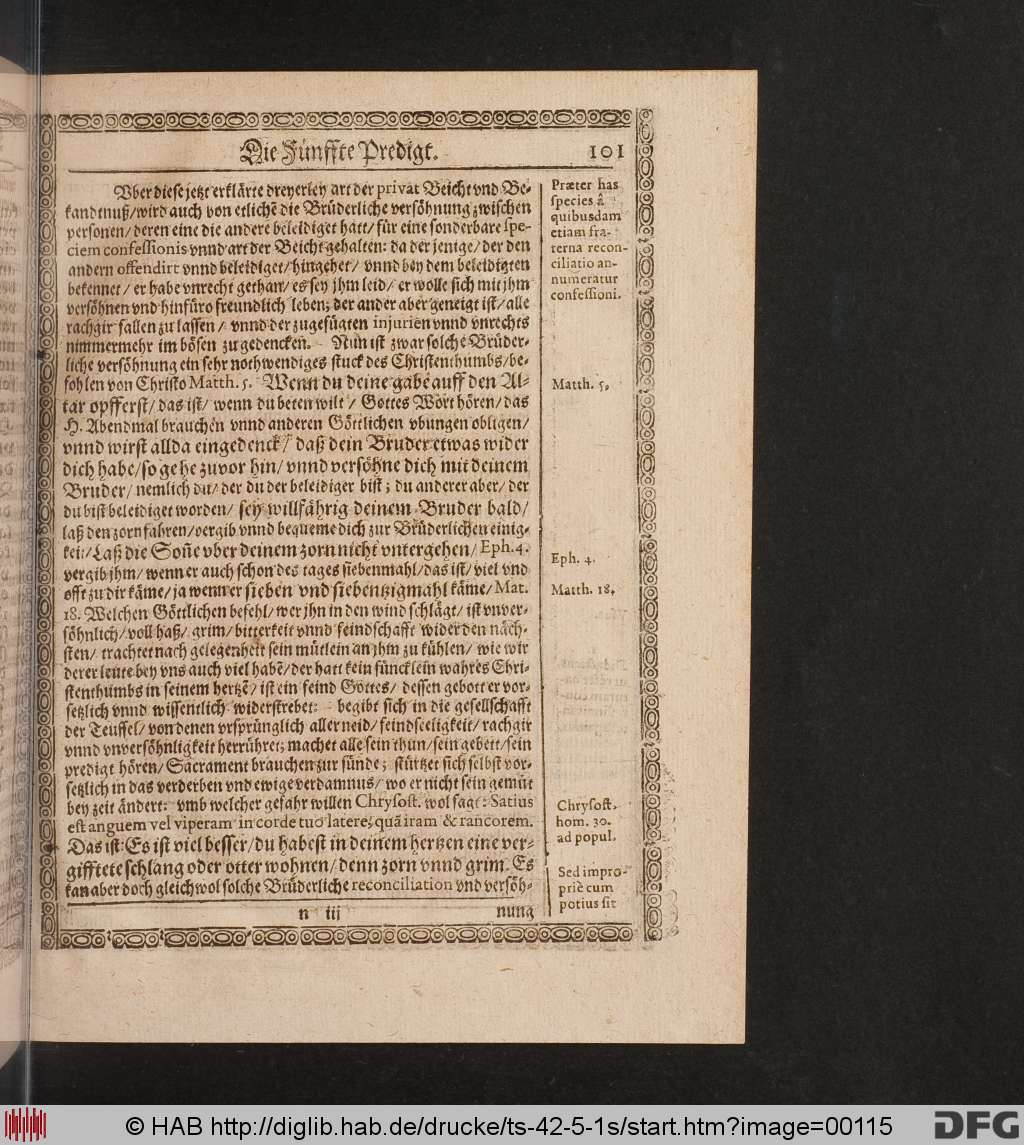 Die Fünffte Predigt. 101
Vber diese jetzt erklärte dreyerley art der privat Beicht vnd Be-
kandtnuß/wird auch von etlichē die Brüderliche versöhnung zwischen
personen/deren eine die andere beleidiget hatt/für eine sonderbare spe-
ciem confessionis vnnd art der Beicht gehalten: da der jenige/der den
andern offendirt vnnd beleidiget/hingehet/ vnnd bey dem beleidigten
bekennet/ er habe vnrecht gethan/es sey jhm leid/er wolle sich mit jhm
versöhnen vnd hinfüro freundlich leben; der ander aber geneigt ist/alle
rachgir fallen zu lassen/ vnnd der zugefügten injurien vnnd vnrechts
nimmermehr im bösen zu gedencken. Nun ist zwar solche Brüder-
liche versöhnung ein sehr nothwendiges stuck des Christenthumbs/be-
fohlen von Christo Matth. 5. Wenn du deine gabe auff den Al-
tar opfferst/das ist/ wenn du beten wilt/ Gottes Wort hören/das
H. Abendmal brauchen vnnd anderen Göttlichen vbungen obligen/
vnnd wirst allda eingedenck/ daß dein Bruder etwas wider
dich habe/so gehe zuvor hin/ vnnd versöhne dich mit deinem
Bruder/ nemlich du/ der du der beleidiger bist; du anderer aber/ der
du bist beleidiget worden/ sey willfährig deinem Bruder bald/
laß den zorn fahren/vergib vnnd bequeme dich zur Brüderlichen einig-
keit/Laß die Soñe vber deinem zorn nicht vntergehen/ Eph. 4.
vergib jhm/ wenn er auch schon des tages siebenmahl/das ist/ viel vnd
offt zu dir käme/ ja wenn er sieben vnd siebentzigmahl käme/ Mat.
18. Welchen Göttlichen befehl/ wer jhn in den wind schlägt/ ist vnver-
söhnlich/voll haß/ grim/bitterkeit vnnd feindschafft wider den näch-
sten/ trachtet nach gelegenheit sein mütlein an jhm zu kühlen/ wie wir
derer leute bey vns auch viel habē/der hatt kein füncklein wahres Chri-
stenthumbs in seinem hertzē/ist ein feind Gottes/ dessen gebott er vor-
setzlich vnnd wissentlich widerstrebet: begibt sich in die gesellschafft
der Teuffel/ von denen vrsprünglich aller neid/ feindseeligkeit/ rachgir
vnnd vnversöhnligkeit herrühret; machet alle sein thun/sein gebett/sein
predigt hören/ Sacrament brauchen zur sünde; stürtzet sich selbst vor-
setzlich in das verderben vnd ewige verdamnus/ wo er nicht sein gemüt
bey zeit ändert: vmb welcher gefahr willen Chrysost. wol sagt: Satius
est anguem vel viperam in corde tuo latere, quā iram & rancorem.
Das ist: Es ist viel besser/du habest in deinem hertzen eine ver-
gifftete schlang oder otter wohnen/denn zorn vnnd grim. Es
kan aber doch gleichwol solche Brüderliche reconciliation vnd versöh-
n iij nung
Præter has
species â
quibusdam
etiam fra-
terna recon-
ciliatio an-
numeratur
confessioni.
Matth. 5.
Eph. 4.
Matth. 18.
Chrysost.
hom. 30.
ad popul.
Sed impro-
priè cum
potius sit
© HAB http://diglib.hab.de/drucke/ts-42-5-1s/start.htm?image=00115
DFG